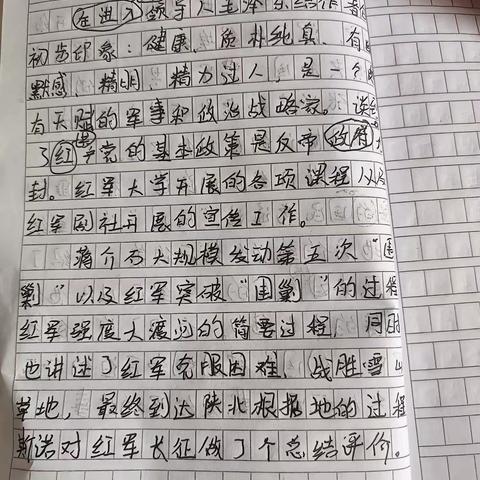 在进入领导人毛泽东给作者
初步印象：健康、质朴纯真、有幽
默感、精明、精力过人，是一个
有天赋的军事和政治战略家。谈
了红党的基本政策是反帝政府
封。红军大学开展的各项课程以及
红军剧社开展的宣传工作。
蒋介石大规模发动第五次“围
剿”以及红军突破“围剿”的过程
红军强度大渡河的简要过程，同时
也讲述了红军克服困难，战胜雪山
草地，最终到达陕北根据地的过程
斯诺对红军长征做了个总结评价。